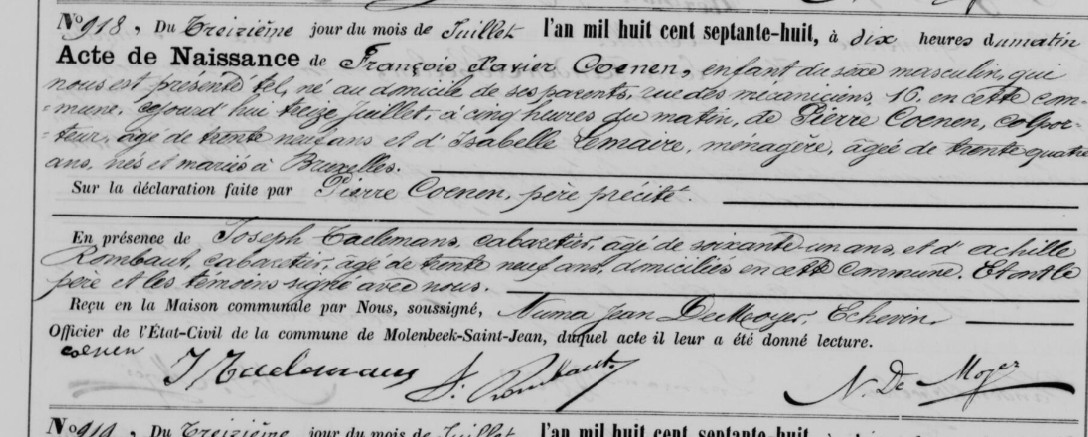 N° 918, Du Treizième jour du mois de Juillet l'an mil huit cent septante-huit, à dix heures du matin
Acte de Naissance de François Xavier Coenen, enfant du sexe masculin, qui
nous est présenté tel, né au domicile de ses parents, rue des mecaniciens, 16, en cette com-
mune, cejourd'hui treize Juillet, à cinq heures du matin, de Pierre Coenen, colpor-
teur, agé de trente neuf ans et d'Isabelle Lemaire, ménagère, agée de trente quatre
ans, nés et mariés à Bruxelles.
Sur la déclaration faite par Pierre Coenen, père précité.
En présence de Joseph Taelemans, cabaretier, agé de soixante-un ans, et d'achille
Rombaut, cabaretier, agé de trente neuf ans, domiciliés en cette commune. Et ont le
père et les témoins signé avec nous.
Reçu en la Maison communale par Nous, soussigné, Numa Jean De Moyer, Echevin,
Officier de l'État-Civil de la commune de Molenbeek-Saint-Jean, duquel acte il leur a été donné lecture.
coenen J Taelemans Rombaut N. De Moyer
N° 919, Du Treizième jour du mois de Juillet l'an mil huit cent septante-huit